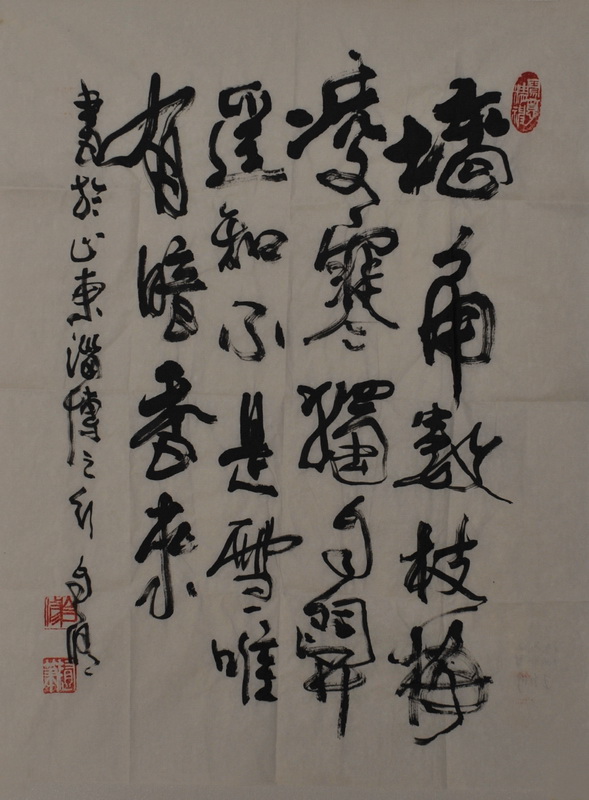 墙角數枝梅
凌寒獨自開
遥知不是雪唯
有暗香来
書於山東淄博之行